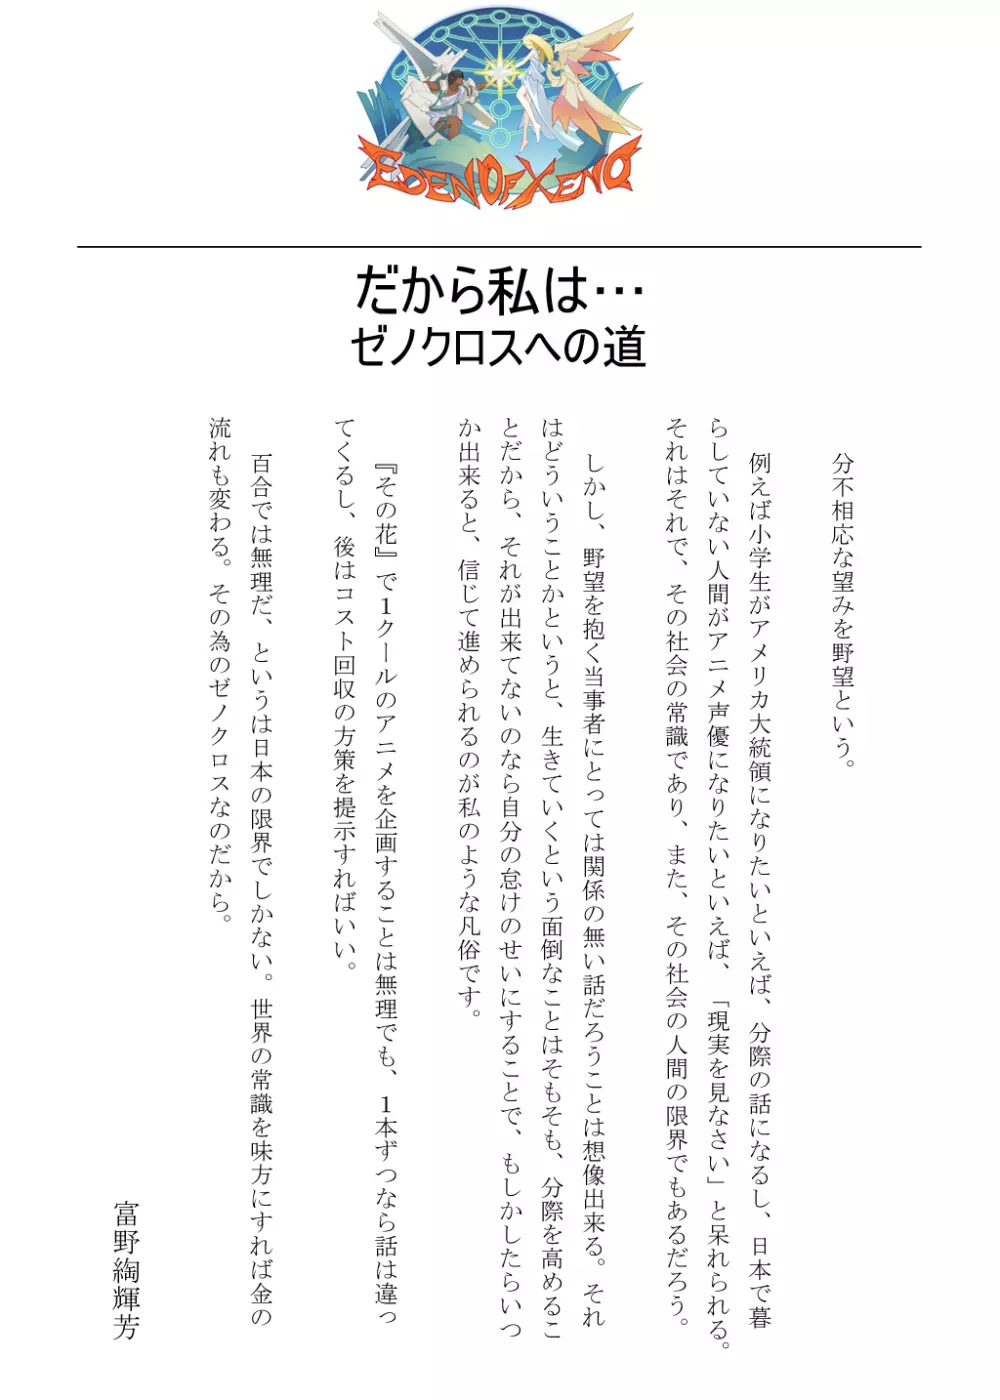 EDEN OF XENO
だから私は…
ゼノクロスへの道
分不相応な望みを野望という。
例えば小学生がアメリカ大統領になりたいといえば、分際の話になるし、日本で暮
らしていない人間がアニメ声優になりたいといえば、「現実を見なさい」と呆れられる。
それはそれで、その社会の常識であり、また、その社会の人間の限界でもあるだろう。
しかし、野望を抱く当事者にとっては関係の無い話だろうことは想像出来る。それ
はどういうことかというと、生きていくという面倒なことはそもそも、分際を高めるこ
とだから、それが出来てないのなら自分の怠けのせいにすることで、もしかしたらいつ
か出来ると、信じて進められるのが私のような凡俗です。
『その花』で１クールのアニメを企画することは無理でも、１本ずつなら話は違っ
てくるし、後はコスト回収の方策を提示すればいい。
百合では無理だ、というは日本の限界でしかない。世界の常識を味方にすれば金の
流れも変わる。その為のゼノクロスなのだから。
富野綯輝芳